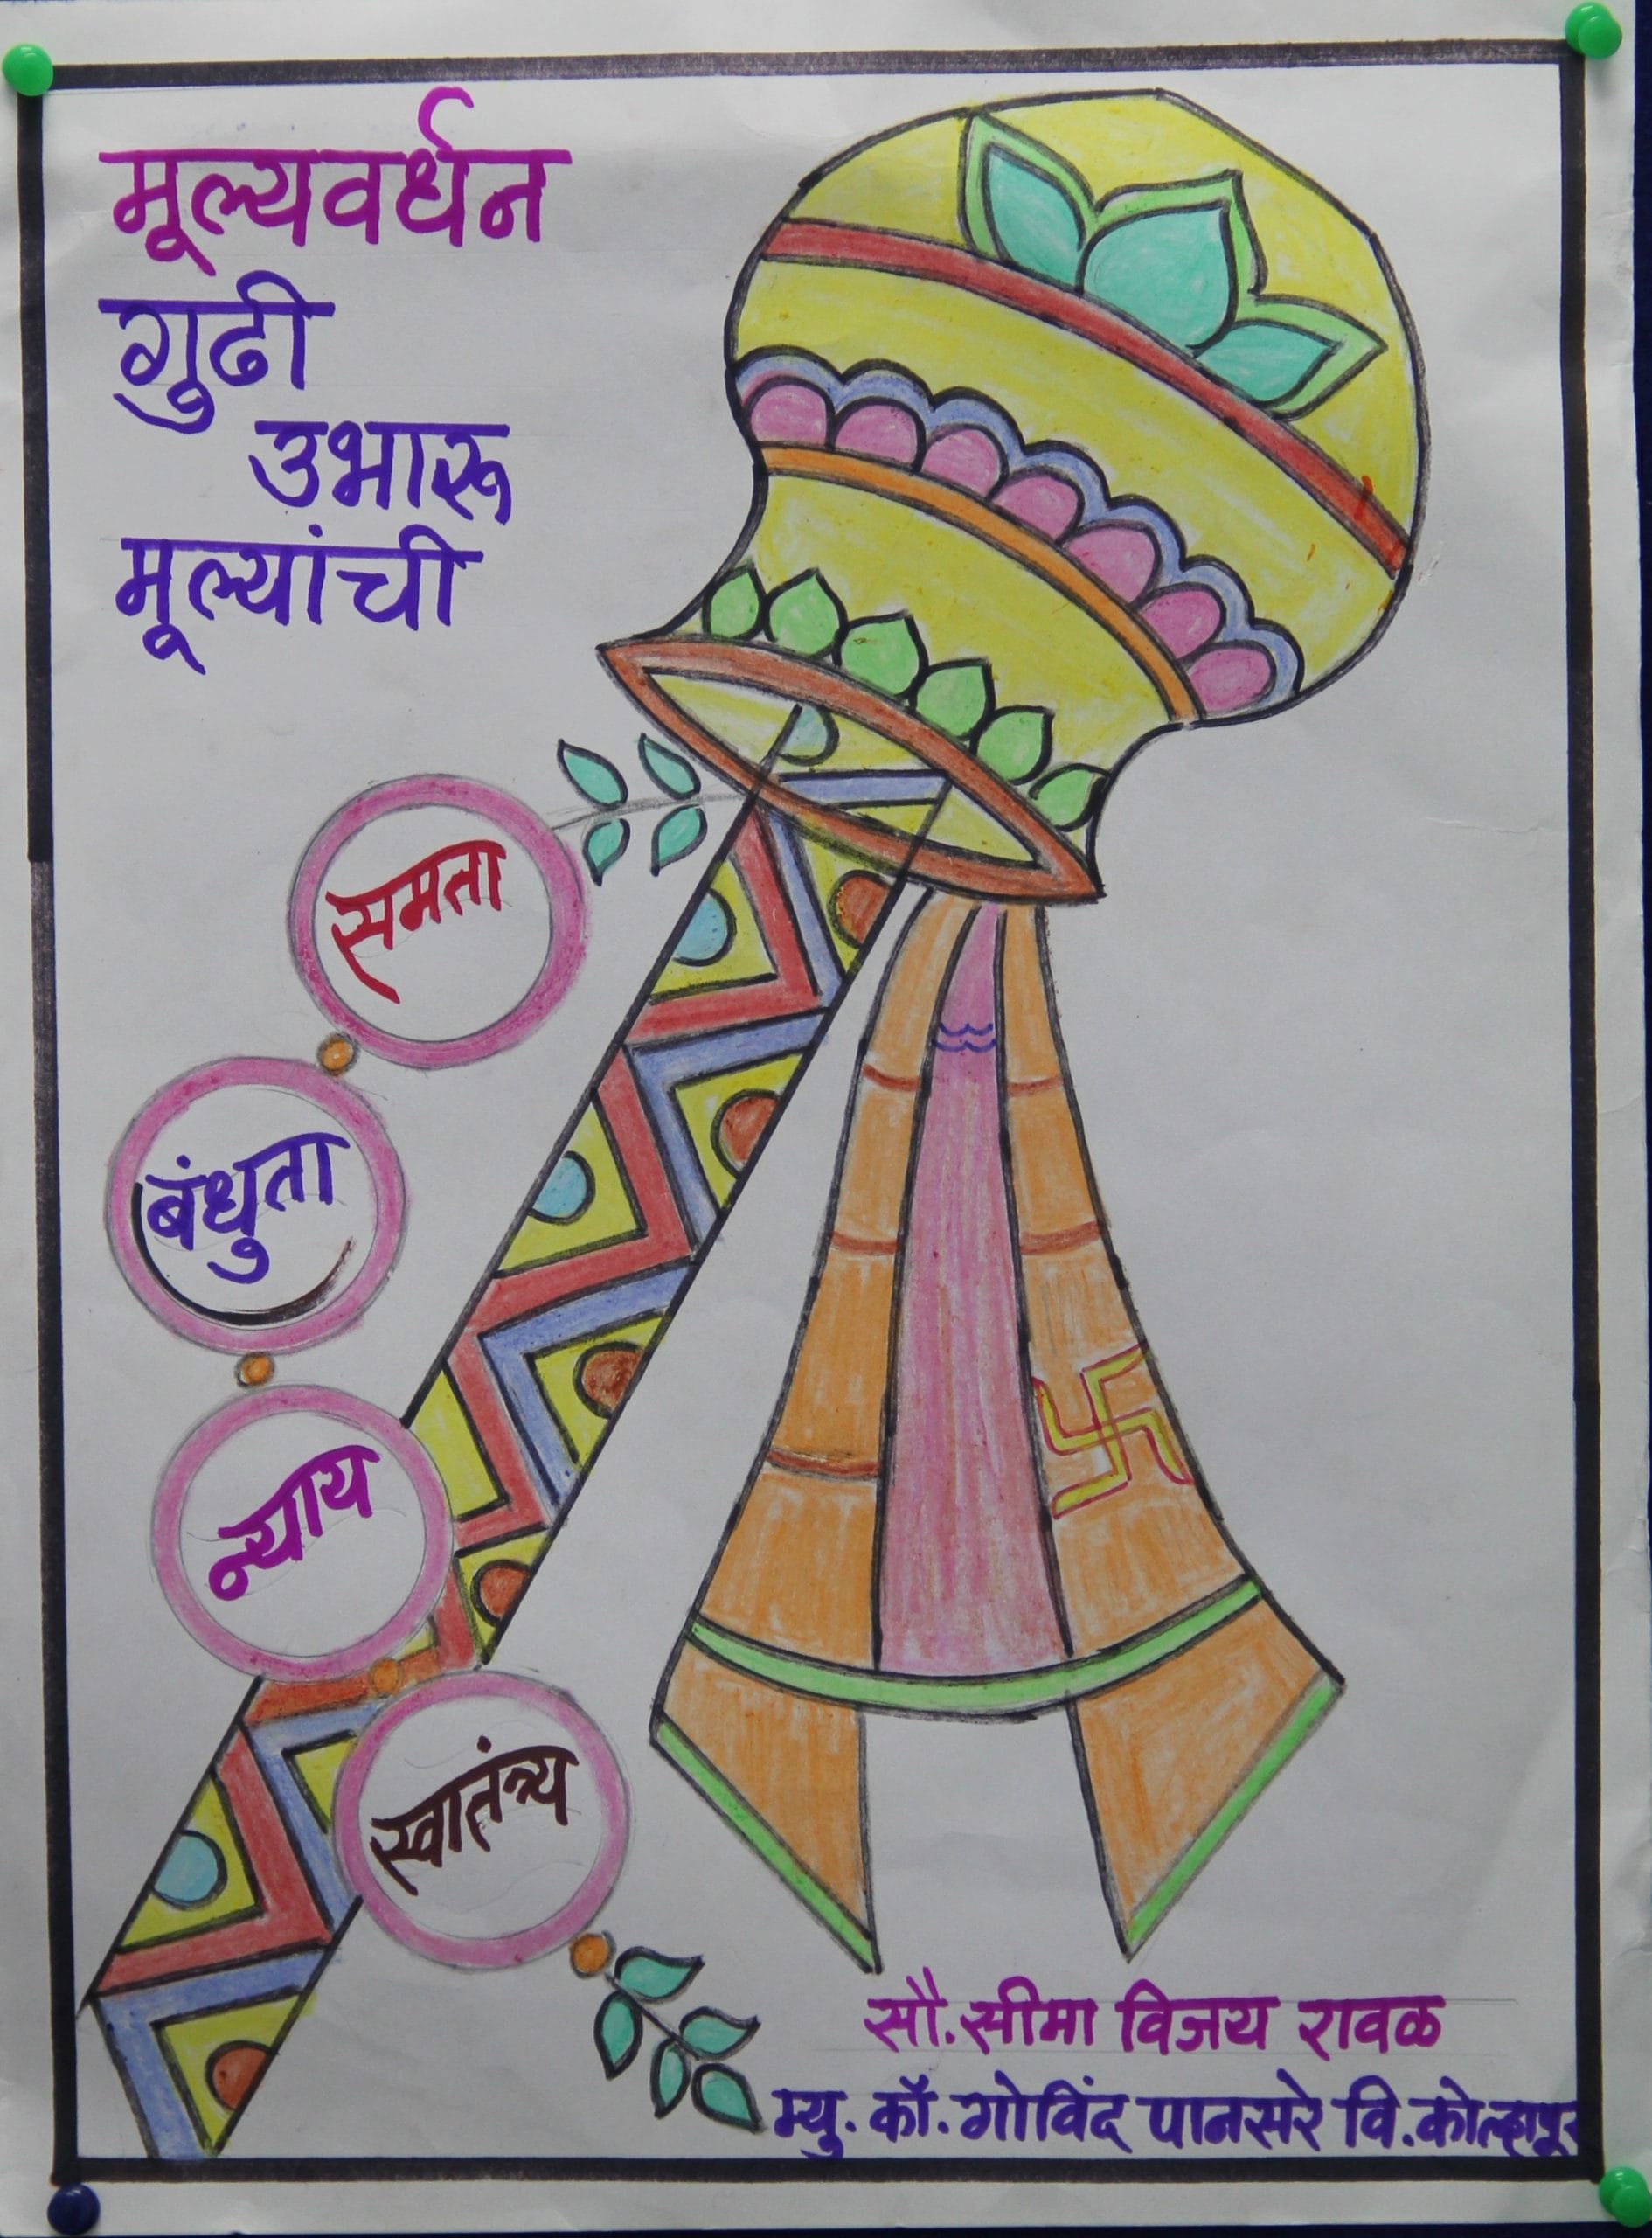 मूल्यवर्धन
गुढी
उभारू
मूल्यांची
समता
बंधुता
न्याय
स्वातंत्र्य
सौ.सीमा विजय रावळ
म्यु. कॉ. गोविंद पानसरे वि. कोल्हापूर